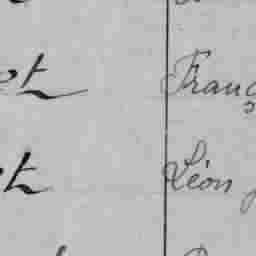 et Franç
et Léon